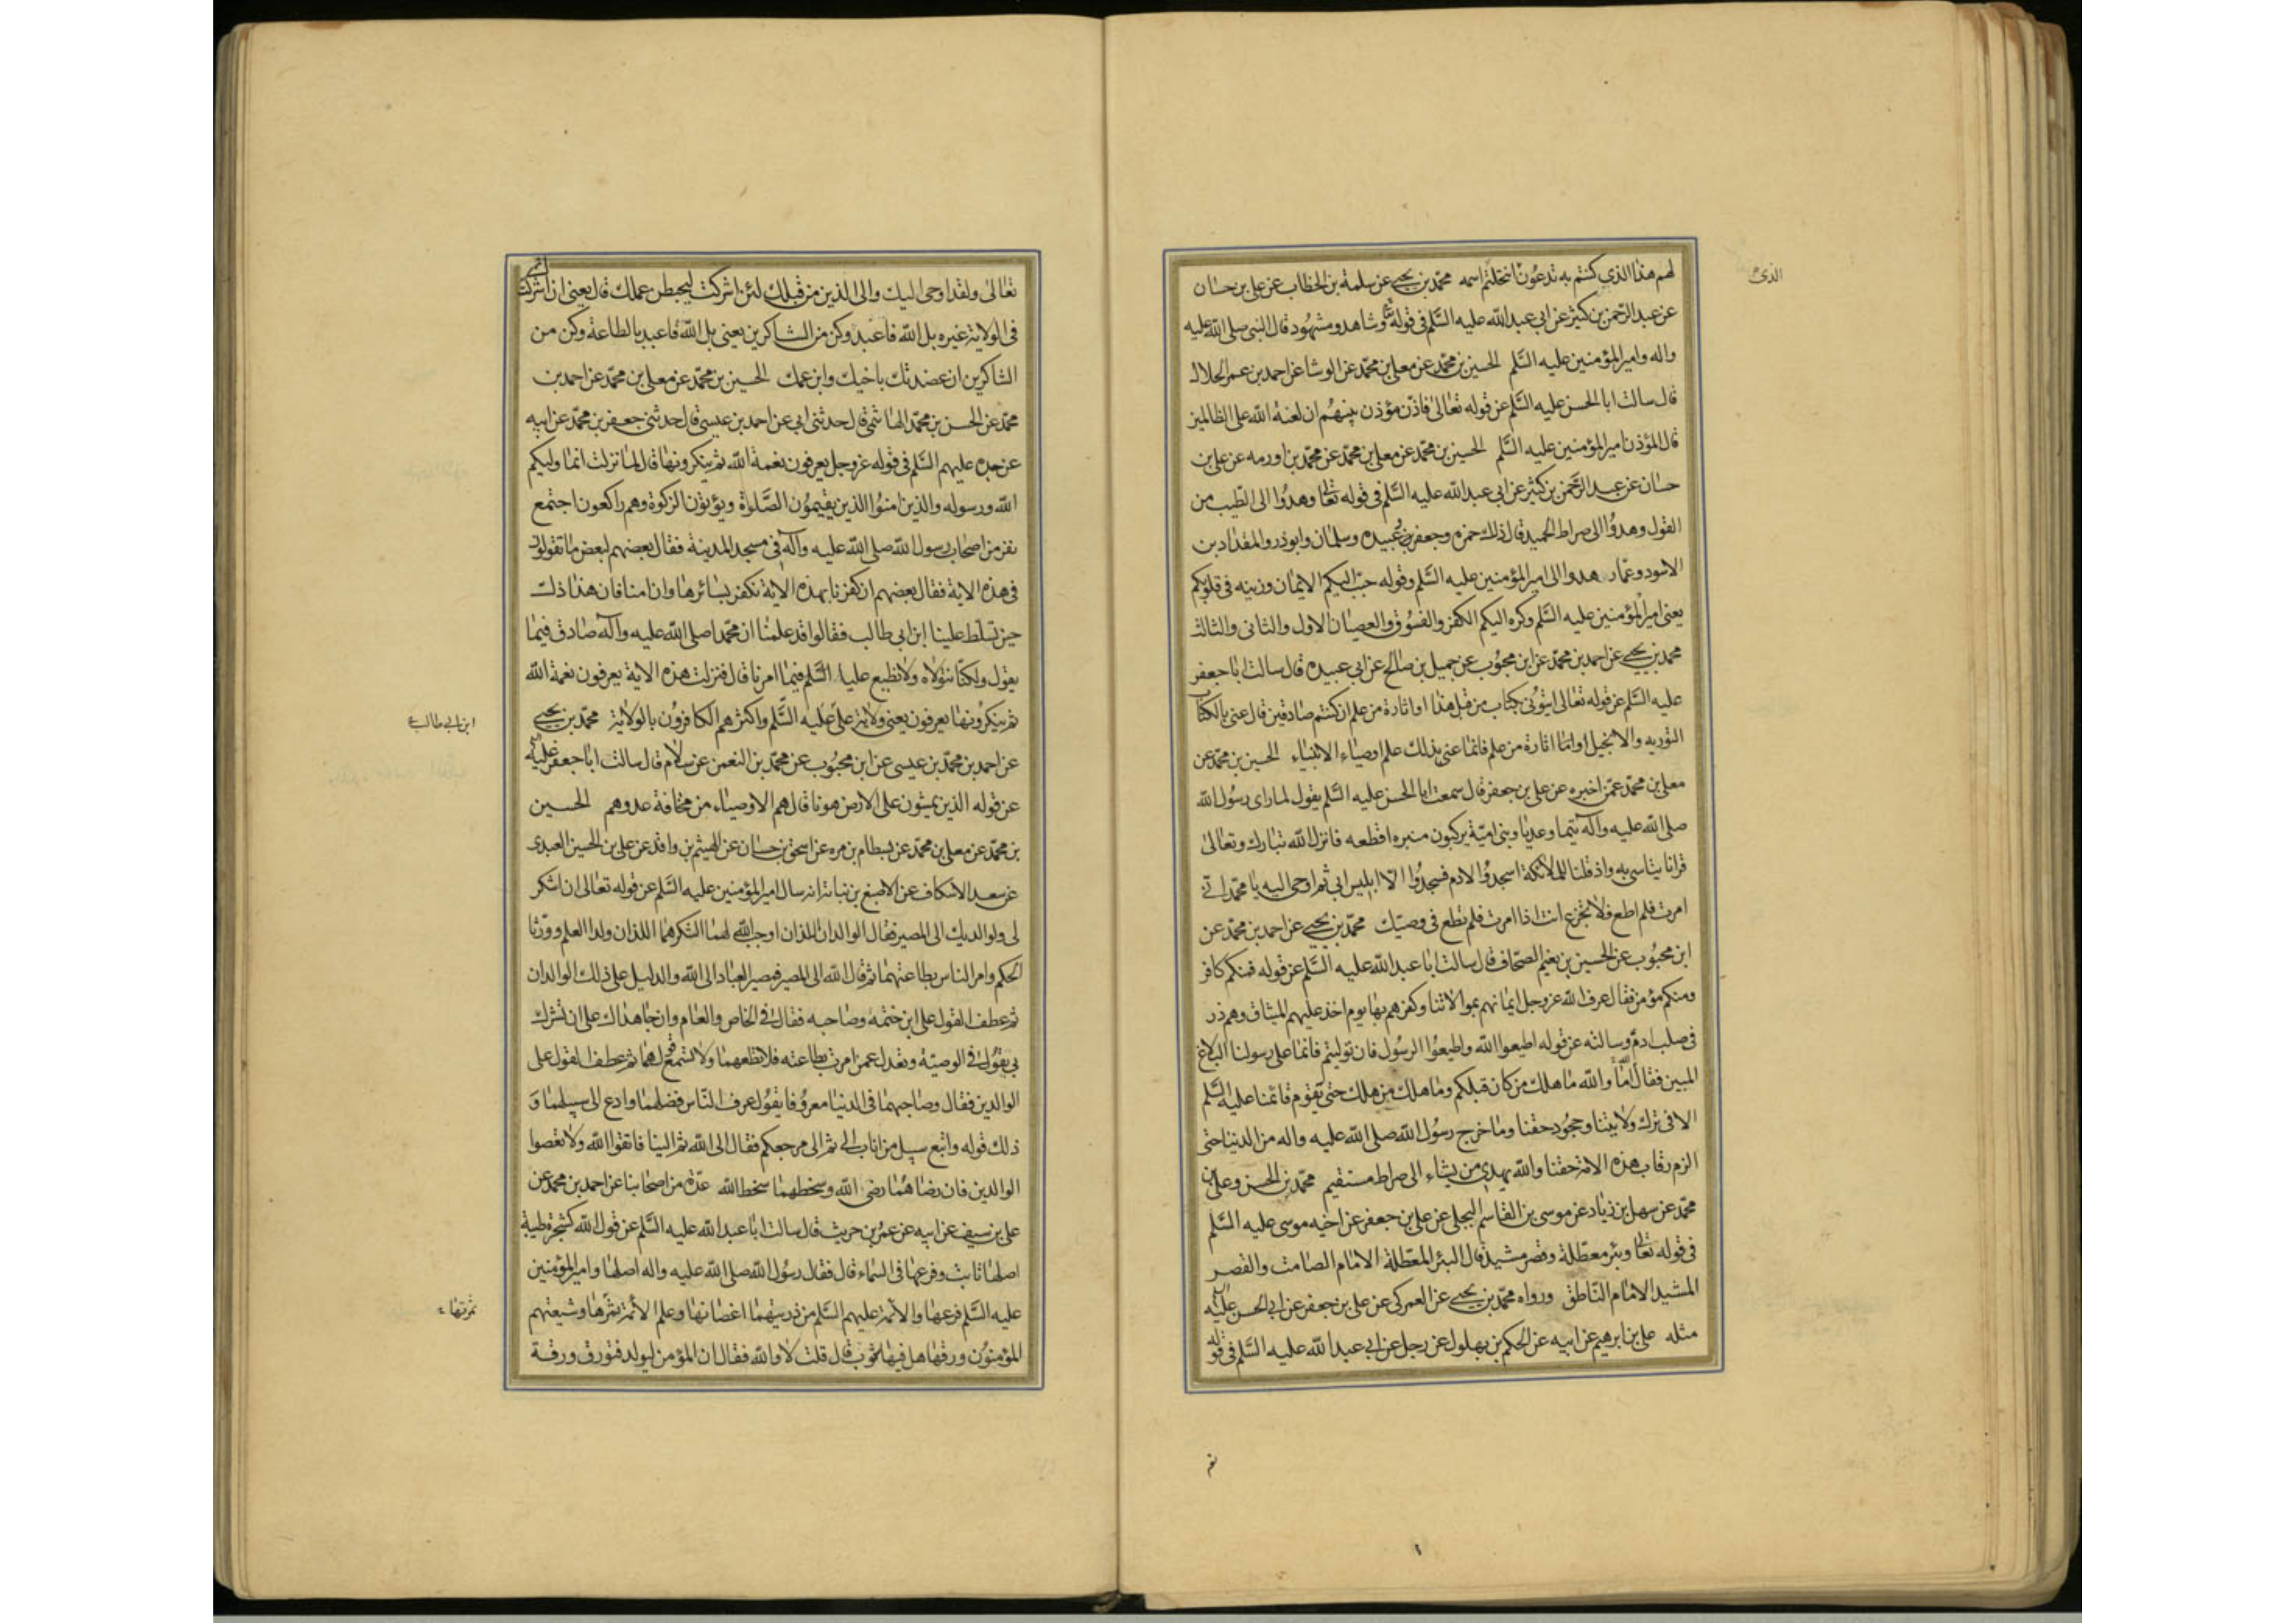 لهم هذا الذي كنتم به تدعون انتحلتم اسمه محمد بن يحيى عن سلمة بن الخطاب عن علي بن حسان
الذى
عن عبد الرحمن بن كثير عن ابي عبد الله عليه السلم في قوله تعالى وشاهد ومشهود قال النبي صلى الله عليه
واله وامير المؤمنين عليه السلم الحسين بن محمد عن معلى بن محمد عن الوشا عن احمد بن عمر الحلال
قال سالت ابا الحسن عليه السلم عن قوله تعالى فاذن مؤذن بينهم ان لعنة الله على الظالمين
قال المؤذن امير المؤمنين عليه السلم الحسين بن محمد عن معلى بن محمد عن محمد بن اورمه عن علي بن
حسان عن عبد الرحمن بن كثير عن ابي عبد الله عليه السلم في قوله تعالى وهدوا الى الطيب من
القول وهدوا الى صراط الحميد قال ذلك حمزه وجعفر وعبيده وسلمان وابوذر والمقداد بن
الاسود وعمار هدوا الى امير المؤمنين عليه السلم وقوله حبب اليكم الايمان وزينه في قلوبكم
يعنى امير المؤمنين عليه السلم وكره اليكم الكفر والفسوق والعصيان الاول والثانى والثالث
محمد بن يحيى عن احمد بن محمد عن ابن محبوب عن جميل بن صالح عن ابي عبيده قال سالت ابا جعفر
عليه السلم عن قوله تعالى ايتونى بكتاب من قبل هذا او اثارة من علم ان كنتم صادقين قال عنى بالكتاب
التوريه والانجيل واما اثارة من علم فانما عنى بذلك علم اوصياء الانبياء الحسين بن محمد عن
معلى بن محمد عمن اخبره عن علي بن جعفر قال سمعت ابا الحسن عليه السلم يقول لما راى رسول الله
صلى الله عليه وآله تيما وعديا وبنى امية يركبون منبره افظعه فانزل الله تبارك وتعالى
قرانا يتاسى به واذ قلنا للملائكة اسجدوا لادم فسجدوا الا ابليس ابى ثم اوحى اليه يا محمد انى
امرت فلم اطع فلا تجزع انت اذا امرت فلم تطع فى وصيك محمد بن يحيى عن احمد بن محمد عن
ابن محبوب عن الحسين بن نعيم الصحاف قال سالت ابا عبد الله عليه السلم عن قوله فمنكم كافر
ومنكم مؤمن فقال عرف الله عز وجل ايمانهم بموالاتنا وكفرهم بها يوم اخذ عليهم الميثاق وهم ذر
فى صلب ادم وسالته عن قوله اطيعوا الله واطيعوا الرسول فان توليتم فانما على رسولنا البلاغ
المبين فقال اما والله ما هلك من كان قبلكم وما هلك من هلك حتى يقوم قائمنا عليه السلم
الا فى ترك ولايتنا وجحود حقنا وما خرج رسول الله صلى الله عليه واله من الدنيا حتى
الزم رقاب هذه الامة حقنا والله يهدى من يشاء الى صراط مستقيم محمد بن الحسن وعلى بن
محمد عن سهل بن زياد عن موسى بن القاسم البجلى عن على بن جعفر عن اخيه موسى عليه السلم
فى قوله تعالى وبئر معطلة وقصر مشيد قال البئر المعطلة الامام الصامت والقصر
المشيد الامام الناطق ورواه محمد بن يحيى عن العمركى عن على بن جعفر عن ابى الحسن عليه السلم
مثله على بن ابرهيم عن ابيه عن الحكم بن بهلول عن رجل عن ابى عبد الله عليه السلم فى قوله
تعالى ولقد اوحى اليك والى الذين من قبلك لئن اشركت ليحبطن عملك قال يعنى ان اشركت
فى الولاية غيره بل الله فاعبد وكن من الشاكرين يعنى بل الله فاعبد بالطاعة وكن من
الشاكرين ان عضدتك باخيك وابن عمك الحسين بن محمد عن معلى بن محمد عن احمد بن
محمد عن الحسن بن محمد الهاشمى قال حدثنى ابى عن احمد بن عيسى قال حدثنى جعفر بن محمد عن ابيه
عن جده عليهم السلم فى قوله عز وجل يعرفون نعمة الله ثم ينكرونها قال لما نزلت انما وليكم
الله ورسوله والذين امنوا الذين يقيمون الصلوة ويؤتون الزكوة وهم راكعون اجتمع
نفر من اصحاب رسول الله صلى الله عليه وآله فى مسجد المدينة فقال بعضهم لبعض ما تقولون
فى هذه الاية فقال بعضهم ان كفرنا بهذه الاية نكفر بسائرها وان امنا فان هذا ذلت
حين تسلط علينا ابن ابى طالب فقالوا قد علمنا ان محمدا صلى الله عليه وآله صادق فيما
يقول ولكنا نتولاه ولا نطيع عليا السلم فيما امرنا قال فنزلت هذه الاية يعرفون نعمة الله
ثم ينكرونها يعرفون يعنى ولاية على عليه السلم واكثرهم الكافرون بالولاية محمد بن يحيى
ابن ابى طالب
عن احمد بن محمد بن عيسى عن ابن محبوب عن محمد بن النعمن عن سلام قال سالت ابا جعفر عليه السلم
عن قوله الذين يمشون على الارض هونا قال هم الاوصياء من مخافة عدوهم الحسين
بن محمد عن معلى بن محمد عن بسطام بن مره عن اسحق بن حسان عن الهيثم بن واقد عن على بن الحسين العبدى
عن سعد الاسكاف عن الاصبغ بن نباتة انه سال امير المؤمنين عليه السلم عن قوله تعالى ان اشكر
لى ولوالديك الى المصير فقال الوالدان اللذان اوجب الله لهما الشكر هما اللذان ولدا العلم وورثا
الحكم وامر الناس بطاعتهما ثم قال الله الى المصير فمصير العباد الى الله والدليل على ذلك الوالدان
ثم عطف القول على ابن حنتمة وصاحبه فقال فى الخاص والعام وان جاهداك على ان تشرك
بى يقول فى الوصيه وتعدل عمن امرت بطاعته فلا تطعهما ولا تسمع قولهما ثم عطف القول على
الوالدين فقال وصاحبهما فى الدنيا معروفا يقول عرف الناس فضلهما وادع الى سبيلهما و
ذلك قوله واتبع سبيل من اناب الى ثم الى مرجعكم فقال الى الله ثم الينا فاتقوا الله ولا تعصوا
الوالدين فان رضاهما رضى الله وسخطهما سخط الله عدة من اصحابنا عن احمد بن محمد عن
على بن سيف عن ابيه عن عمرو بن حريث قال سالت ابا عبد الله عليه السلم عن قول الله كشجرة طيبة
اصلها ثابت وفرعها فى السماء قال فقال رسول الله صلى الله عليه واله اصلها وامير المؤمنين
عليه السلم فرعها والائمة عليهم السلم من ذريتهما اغصانها وعلم الائمة ثمرها وشيعتهم
ثمرتها
المؤمنون ورقها هل فيها شوب قال قلت لا والله فقال ان المؤمن ليولد فتورق ورقة